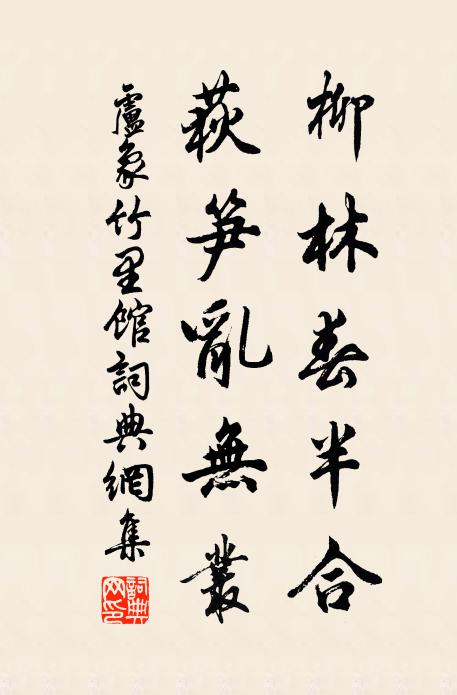 柳林春半合
荻笋亂無叢
盧象竹里館詞典網集
詞典网印